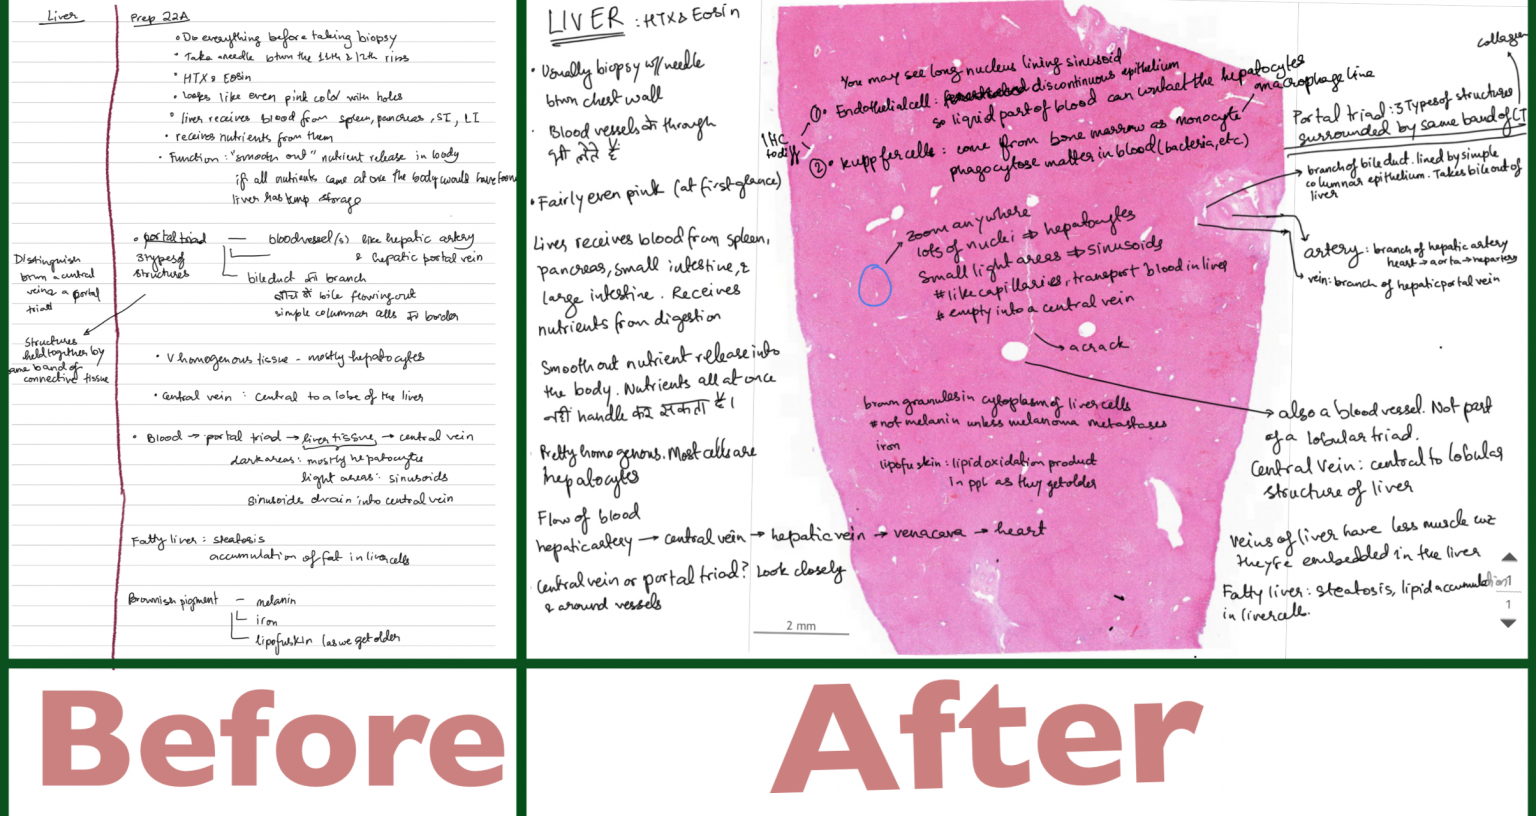 Liver
Prep 22A
• Do everything before taking biopsy
• Take a needle btwn the 11th & 12th ribs
• HTX & Eosin
• Looks like even pink cold with holes
• liver receives blood from spleen, pancreas, SI, LI
• receives nutrients from them
• Function: "smooth out" nutrient release in body
if all nutrients came at once the body would have
liver has temp storage
• portal triad — bloodvessel(s) like hepatic artery
& hepatic portal vein
3 types of
structures
bile duct की branch
bile flowing out
simple columnar cells border
Distinguish
btwn a central
vein & a portal
triad
Structures
held together by
same band of
connective tissue
• V homogenous tissue - mostly hepatocytes
• Central vein: central to a lobe of the liver
• Blood → portal triad → liver tissue → central vein
dark areas: mostly hepatocytes
light areas: sinusoids
sinusoids drain into central vein
Fatty liver: steatosis
accumulation of fat in liver cells
Brownish pigment — melanin
iron
lipofuskin (as we get older
LIVER: HTX & Eosin
• Usually biopsy w/ needle
btwn chest wall
• Blood vessels through
• Fairly even pink (at first glance)
Liver receives blood from spleen,
pancreas, small intestine, &
large intestine. Receives
nutrients from digestion
Smooth out nutrient release into
the body. Nutrients all at once
नहीं handle कर सकता है।
Pretty homogenous. Most cells are
hepatocytes
Flow of blood
hepatic artery → central vein → hepatic vein → venacava → heart
Central vein or portal triad? Look closely
& around vessels
You may see long nucleus lining sinusoid
① • Endothelial cell: discontinuous epithelium
so liquid part of blood can contact the hepatocytes
IHC
to diff
② • kuppfer cells: come from bone marrow as monocyte
macrophage line
phagocytose matter in blood (bacteria, etc.)
zoom anywhere
lots of nuclei ⇒ hepatocytes
Small light areas ⇒ sinusoids
# like capillaries, transport blood in liver
# empty into a central vein
a crack
brown granules in cytoplasm of liver cells
# not melanin unless melanoma metastases
iron
lipofuskin: lipid oxidation product
in ppl as they get older
2 mm
collagen
Portal triad: 3 Types of structures
surrounded by same band of CT
branch of bile duct. lined by simple
columnar epithelium. Takes bile out of
liver
artery: branch of hepatic artery
heart → aorta → hep artery
vein: branch of hepatic portal vein
also a blood vessel. Not part
of a lobular triad.
Central Vein: central to lobular
structure of liver
Veins of liver have less muscle cuz
they're embedded in the liver
Fatty liver: steatosis, lipid accumulation
in liver cell.
1
1
Before
After